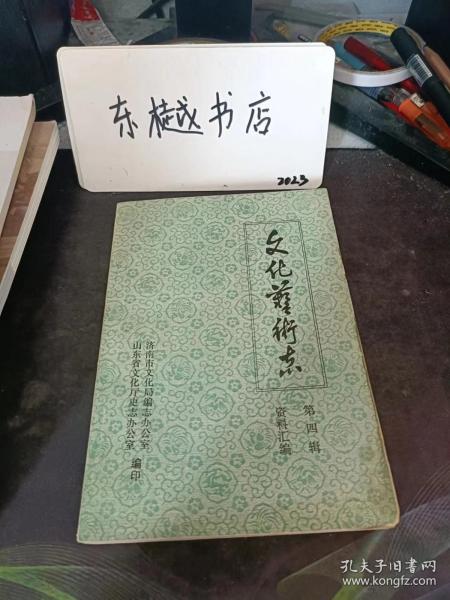 东樾书店
2023
文化艺術志
第四辑
资料汇编
济南市文化局编志办公室
山东省文化厅史志办公室
编印
孔夫子旧书网
www.kongfz.com